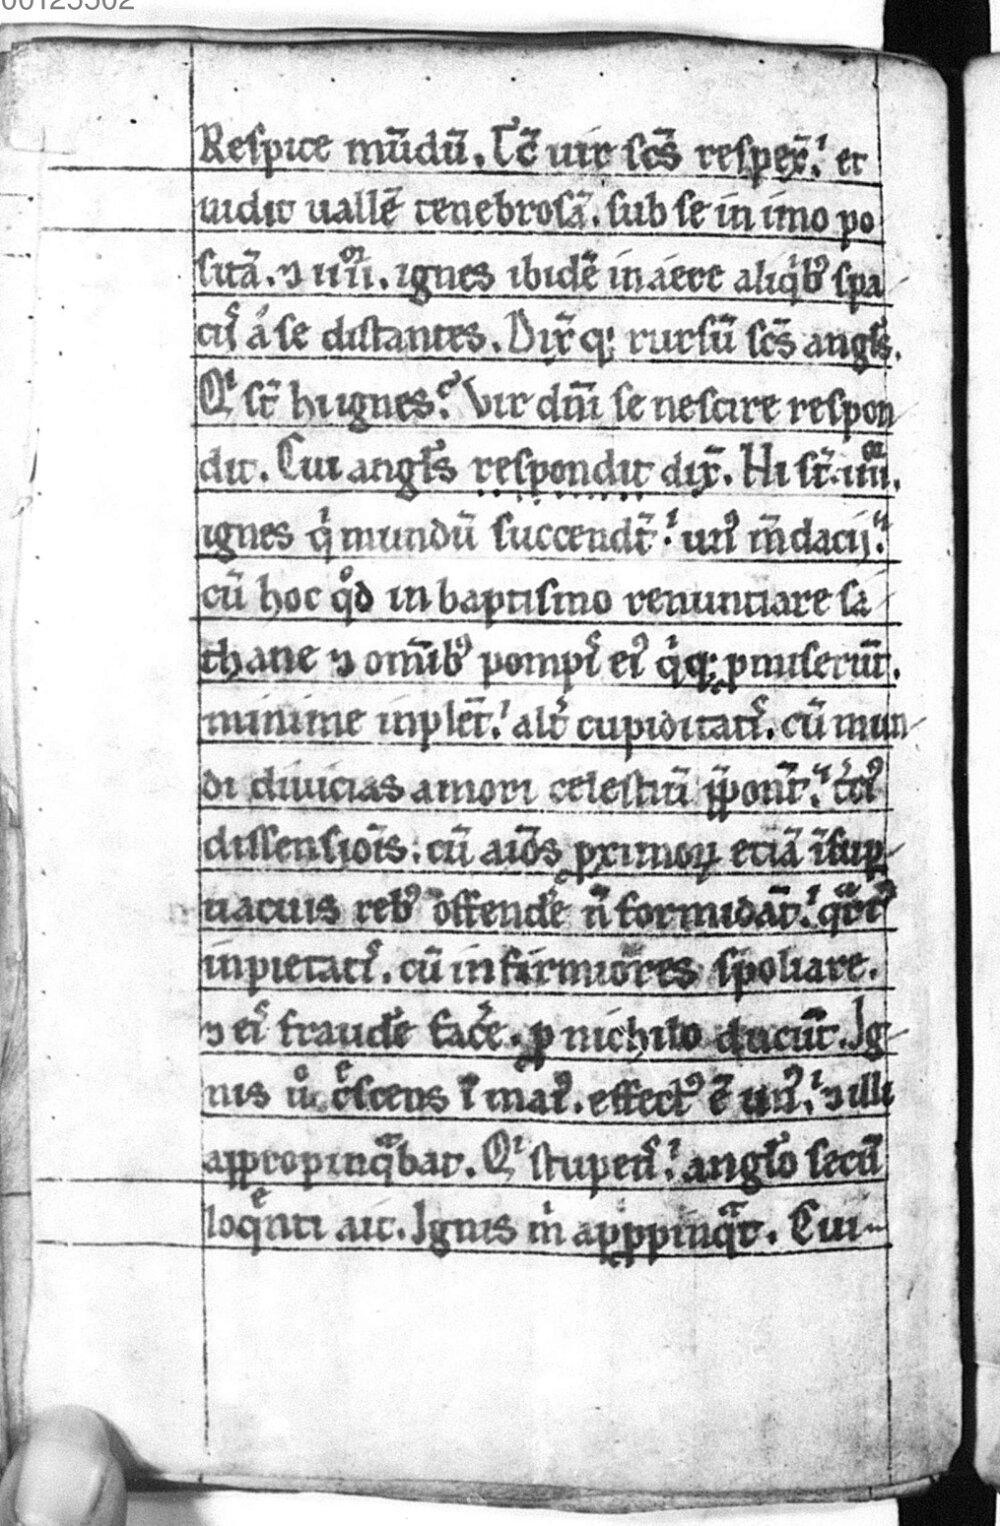 00125502
Respice mu᷃du᷃. Tc̄ uir sc̄s respex̄. et
uidit uallē tenebrosā. sub se in imo po
sitā. ⁊ iiiior. ignes ibidē in aere aliqⁱbꝰ spa
ciis a se distantes. Dix̄ q; rursū sc̄s angl̄s.
Qⁱ st̄ hi ignes? Vir dn̄i se nescire respon
dit. Cui angl̄s respondit dix̄. Hi st̄. iiiior.
ignes qⁱ mundū succendt̄. unꝰ m̄dacij.
cū hoc qͦd in baptismo renuntiare sa
thane ⁊ om̄ibꝰ pompis eiꝰ qⁱq; ꝓmiserūt.
minime inplēt. alt̄ cupiditatis. cū mun
di diuicias amori celestiū p̄ponūt. tciꝰ
dissensiōis. cū aīos ꝓximoꝝ etiā īsuꝑ
uacuis rebꝰ offendē n̄ formidāt. qͣrtꝰ
inpietatis. cū infirmiores spoliare.
⁊ eis fraudē facē. ꝓ nichilo ducūt. Ig
nis ū cͤscens ī maiꝰ. effectꝰ ē unꝰ. ⁊ illi
appropinqͣbat. Qⁱ stupens. angl̄o secū
loqͤnti ait. Ignis m̄ apꝓpinqͣt. Cui